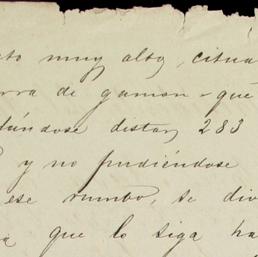 to muy alto, citua
rra de gamon - que
dándose distan 283
y no pudiéndose
ese rumbo, se div
que lo siga ha